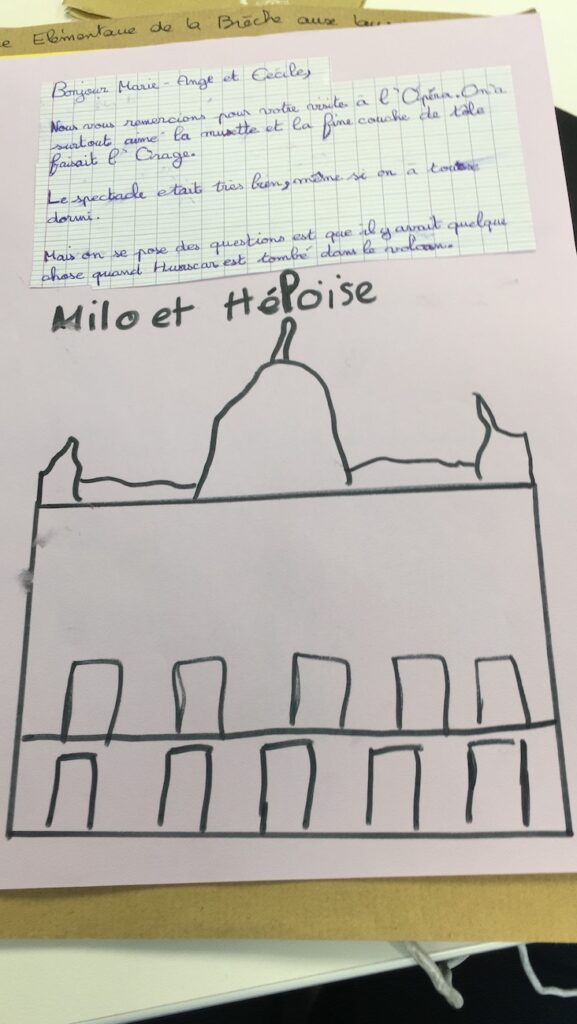 e Elémentaire de la Brèche aux
Bonjour Marie-Ange et Cécile,
Nous vous remercions pour votre visite à l'Opéra. On a
surtout aimé la musette et la fine couche de tôle
faisait l'Orage.
Le spectacle etait très bien, même si on à
dormi.
Mais on se pose des questions est que il y avait quelque
chose quand Huascar est tombé dans le volcan.
Milo et Héloise